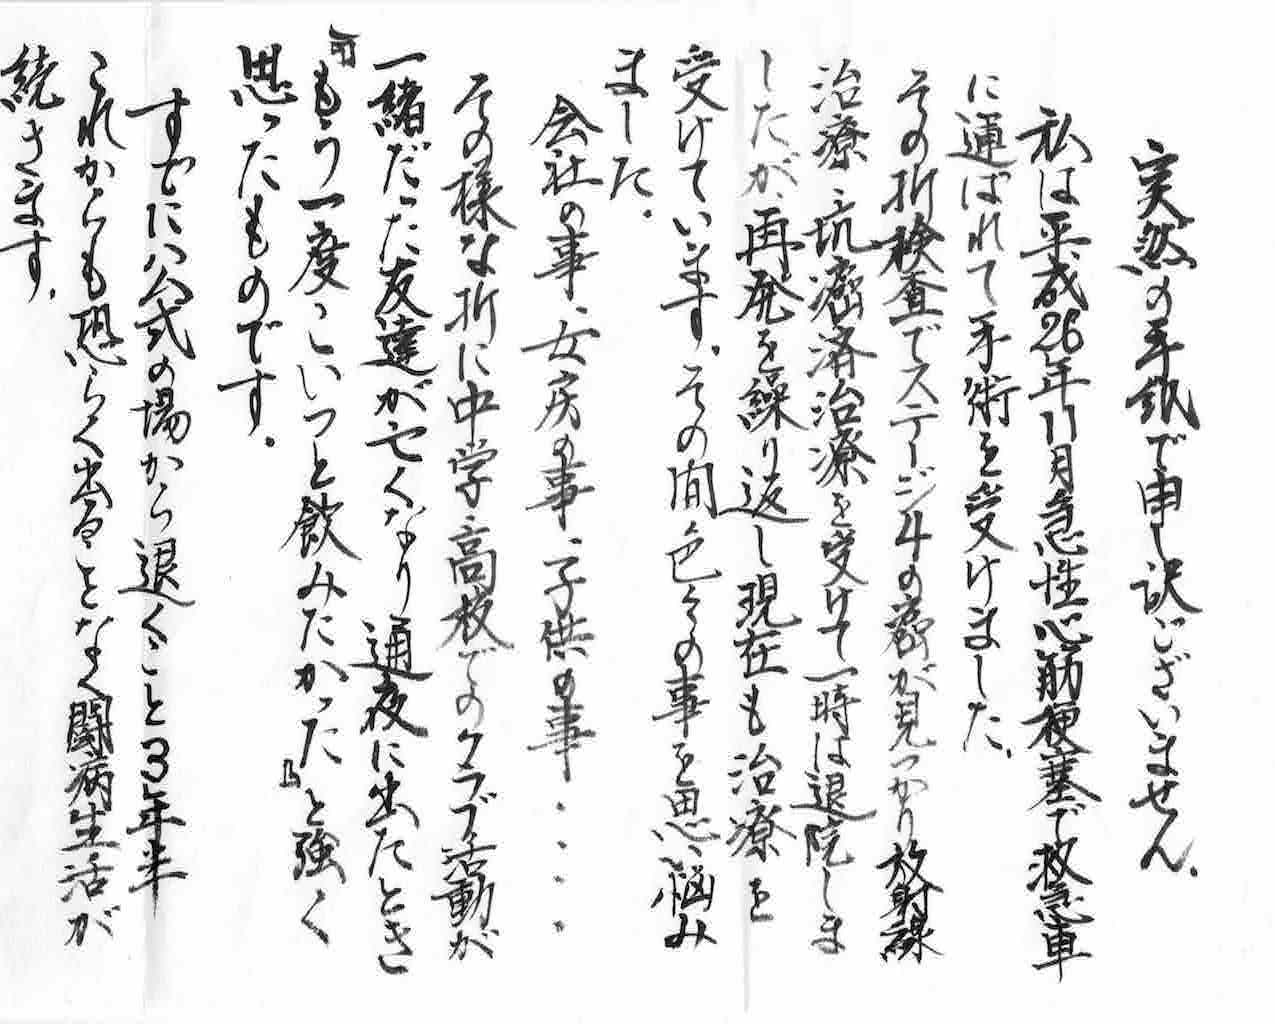 突然の手紙で申し訳ございません。
私は平成26年11月急性心筋梗塞で救急車
に運ばれて手術を受けました。
その折検査でステージ4の癌が見つかり放射線
治療、抗癌済治療を受けて一時は退院しま
したが、再発を繰り返し現在も治療を
受けています。その間色々の事を思い悩み
ました。
会社の事、女房の事、子供の事・・・・
その様な折に中学、高校でのクラブ活動が
一緒だった友達が亡くなり通夜に出たとき
『もう一度こいつと飲みたかった』と強く
思ったものです。
すでに公式の場から退くこと3年半
これからも恐らく出ることなく闘病生活が
続きます。